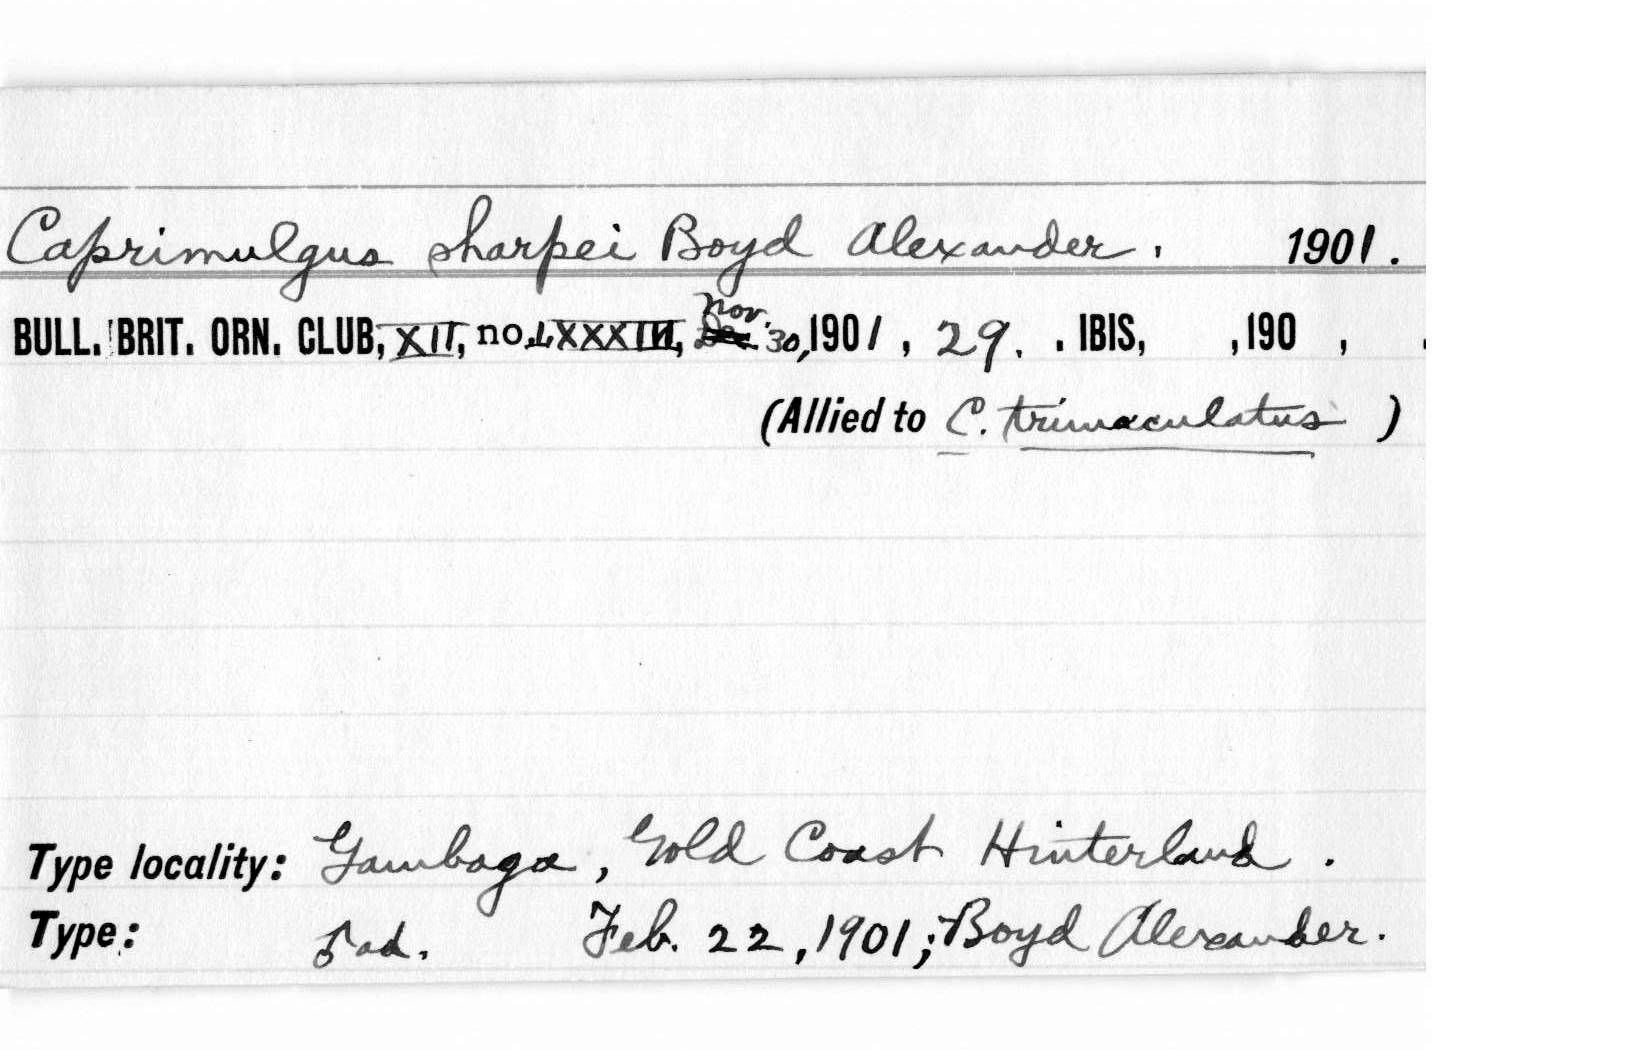 Caprimulgus sharpei Boyd Alexander. 1901.
Nov.
BULL. BRIT. ORN. CLUB, XII, no. LXXXIII, 30, 1901, 29. . IBIS, ,190 , .
(Allied to C. trimaculatus )
Type locality: Gambaga, Gold Coast Hinterland.
Type: ♂ ad. Feb. 22, 1901; Boyd Alexander.